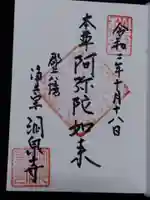 令和二年十月十八日
本尊
阿弥陀如来
郡上八幡
浄土宗
洞泉寺